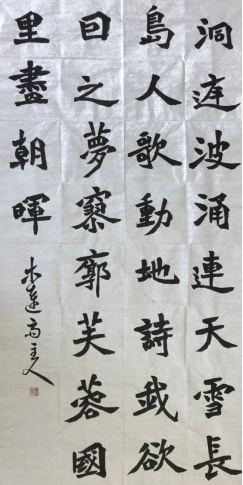 洞庭波涌連天雪長
島人歌動地詩我欲
因之夢寥廓芙蓉國
里盡朝暉
主人